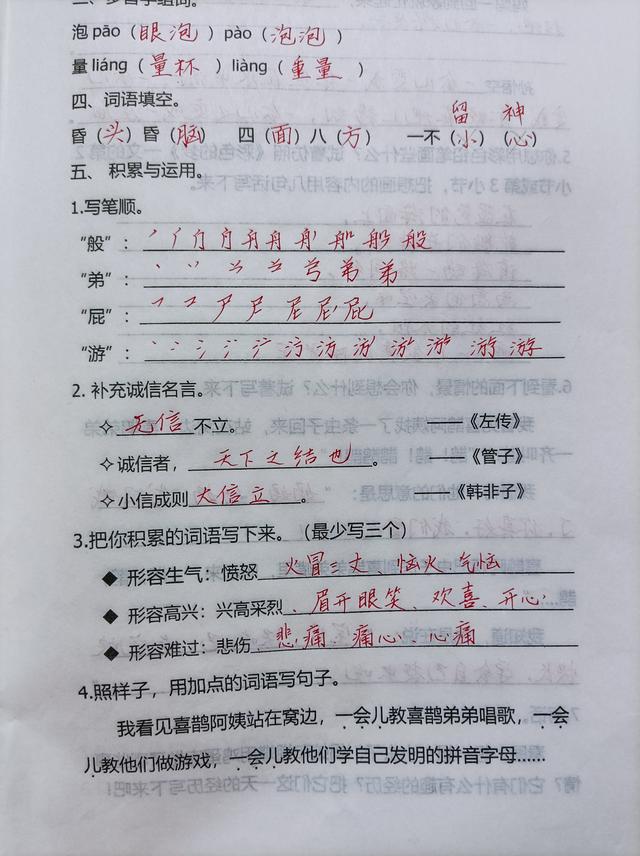 泡 pāo（眼泡）pào（泡泡）
量 liáng（量杯）liàng（重量）
四、词语填空。
留 神
昏（头）昏（脑） 四（面）八（方） 一不（小）（心）
五、积累与运用。
1.写笔顺。
“般”： 般
“弟”： 弟 弟
“屁”： 尸 尸 屁
“游”： 游 游
2. 补充诚信名言。
✧ 无信不立。 ——《左传》
✧诚信者，天下之结也。 ——《管子》
✧小信成则大信立。 ——《韩非子》
3.把你积累的词语写下来。（最少写三个）
◆ 形容生气：愤怒 火冒三丈、恼火、气恼
◆ 形容高兴：兴高采烈、眉开眼笑、欢喜、开心
◆ 形容难过：悲伤 悲痛、痛心、心痛
4.照样子，用加点的词语写句子。
我看见喜鹊阿姨站在窝边，一会儿教喜鹊弟弟唱歌，一会
儿教他们做游戏，一会儿教他们学自己发明的拼音字母……